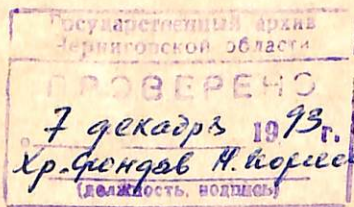 Государственный архив
Черниговской области
ПРОВЕРЕНО
7 декабря 1993 г.
Хр. фондов
(должность, подпись)